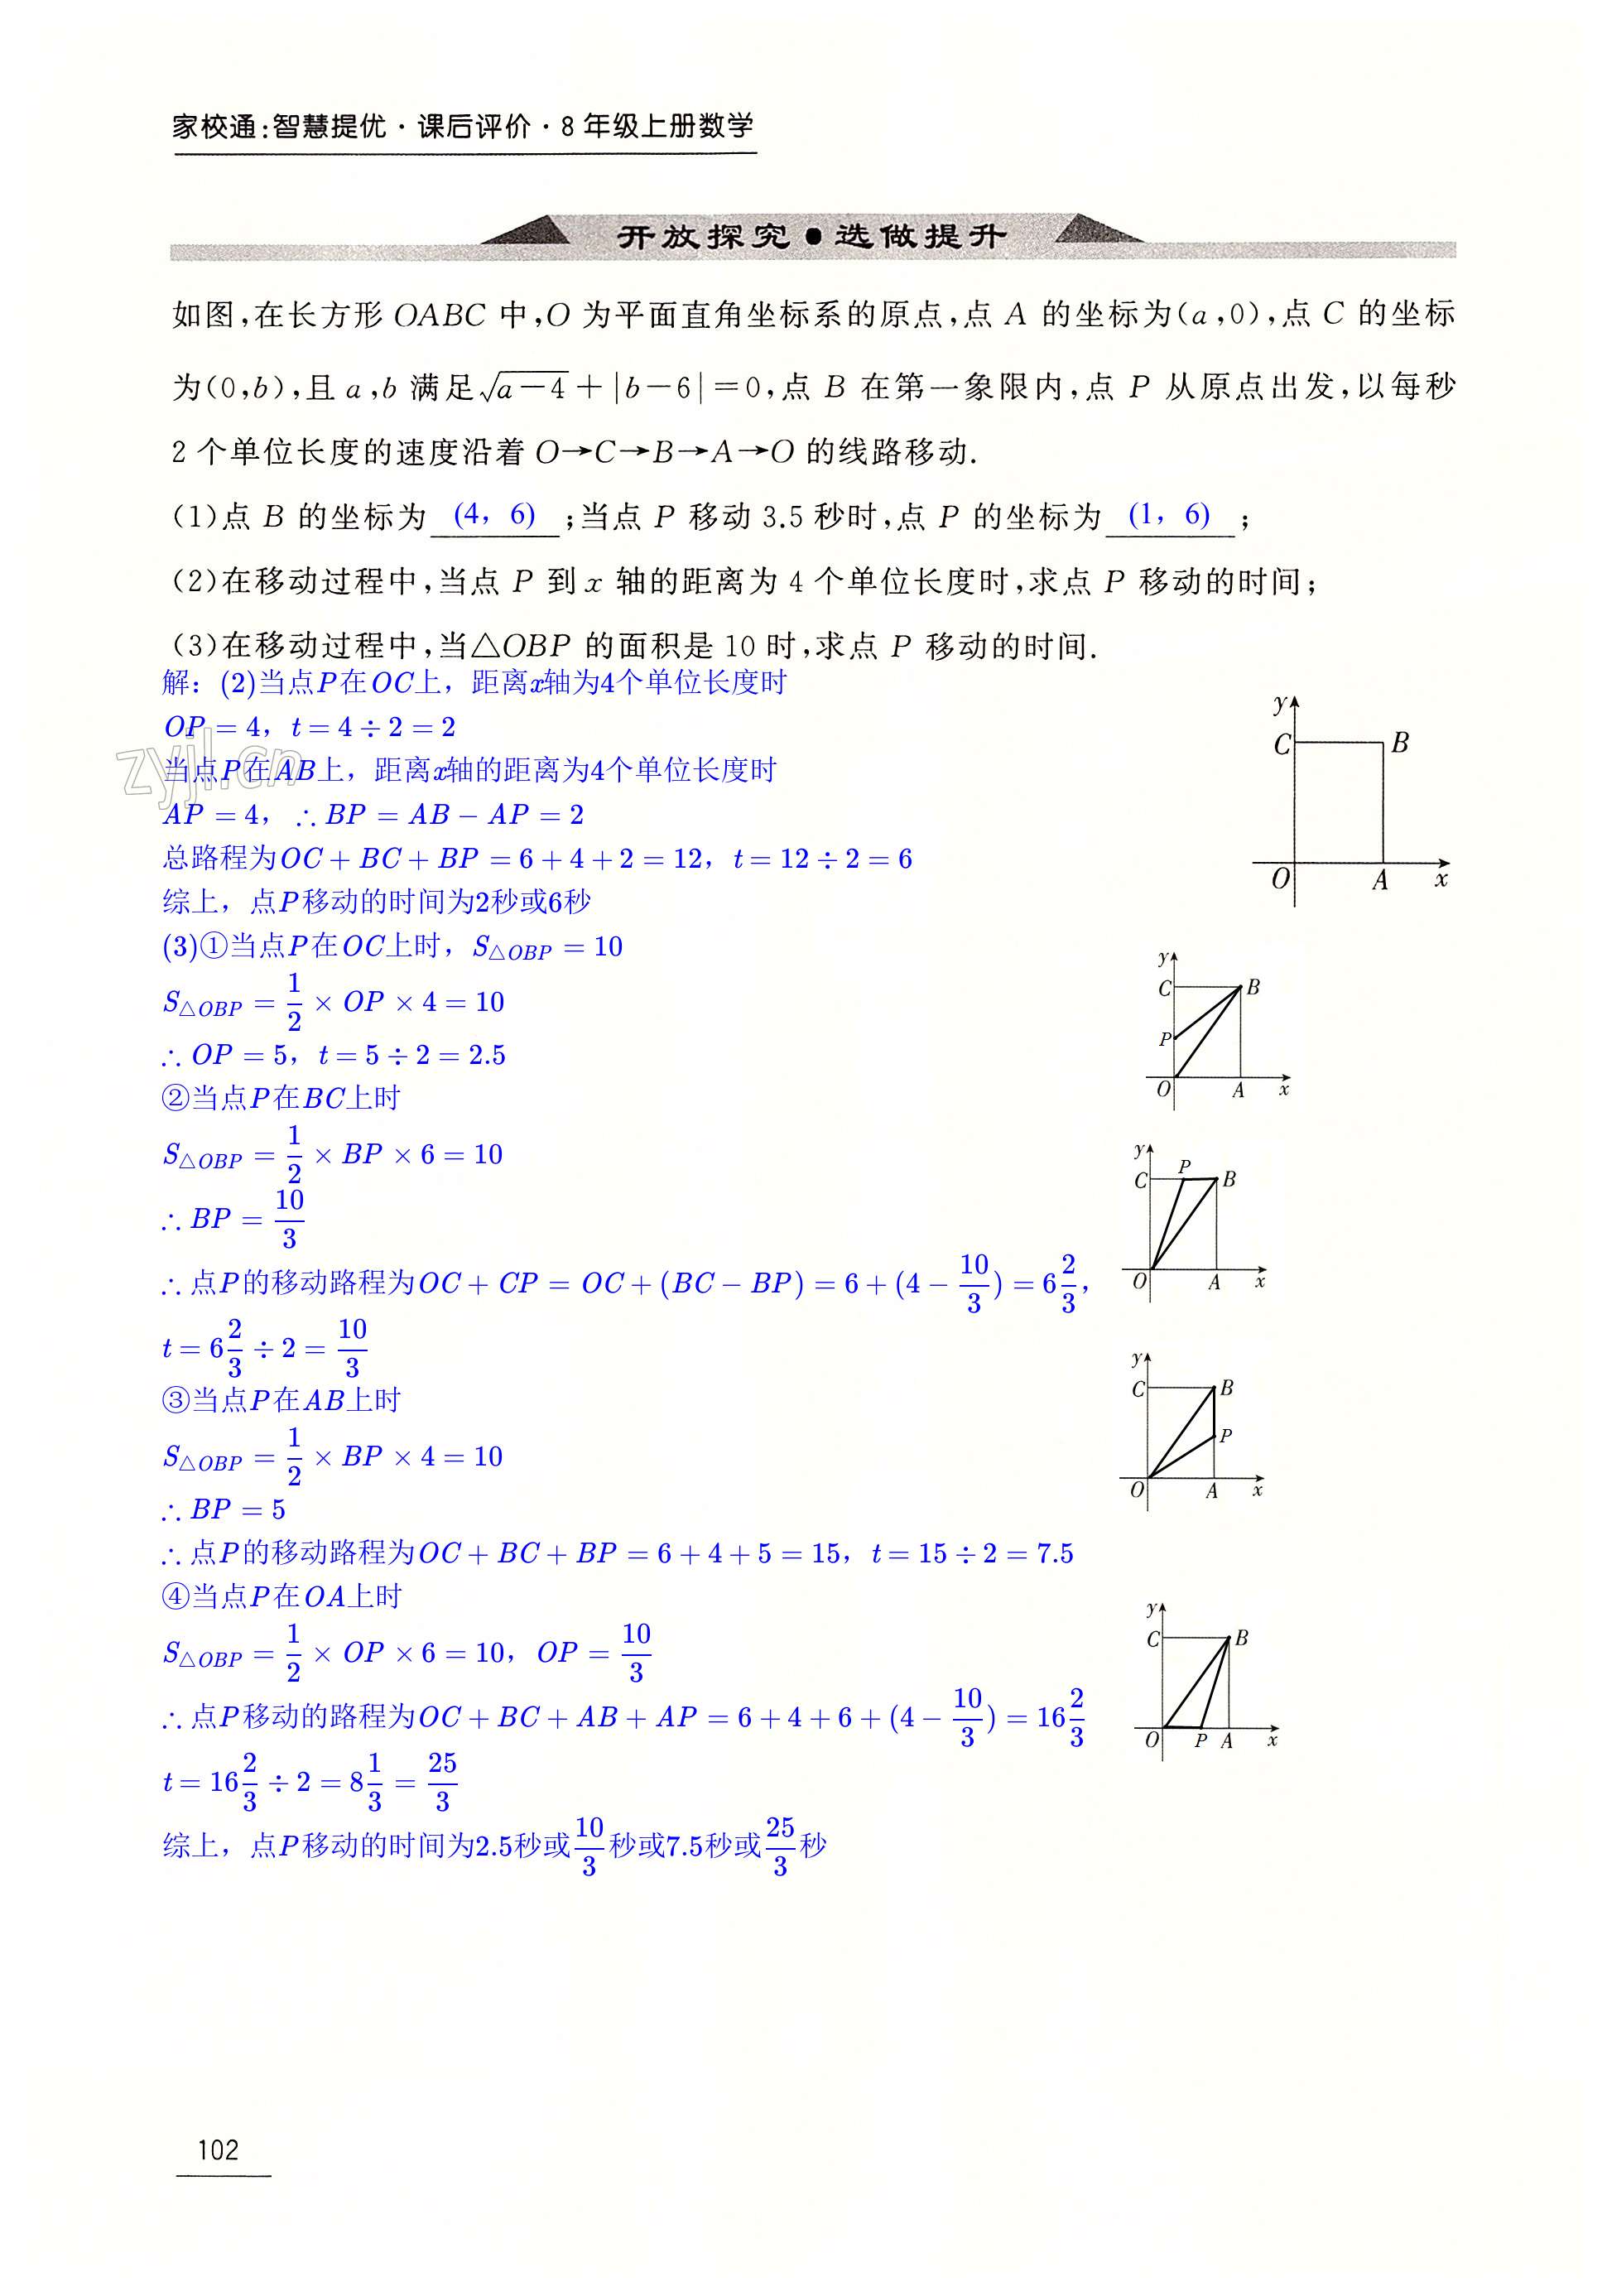 家校通:智慧提优·课后评价·8年级上册数学
开放探究●选做提升
如图,在长方形OABC中,O为平面直角坐标系的原点,点A的坐标为(a,0),点C的坐标
为(0,b),且a,b满足√(a-4)+|b-6|=0,点B在第一象限内,点P从原点出发,以每秒
2个单位长度的速度沿着O→C→B→A→O的线路移动.
(1)点B的坐标为 (4, 6) ;当点P移动3.5秒时,点P的坐标为 (1, 6) ;
(2)在移动过程中,当点P到x轴的距离为4个单位长度时,求点P移动的时间;
(3)在移动过程中,当△OBP的面积是10时,求点P移动的时间.
解：(2)当点P在OC上，距离x轴为4个单位长度时
OP=4，t=4÷2=2
zyjl.cn
当点P在AB上，距离x轴的距离为4个单位长度时
AP=4，∴BP=AB-AP=2
总路程为OC+BC+BP=6+4+2=12，t=12÷2=6
综上，点P移动的时间为2秒或6秒
y
C B
O A x
(3)①当点P在OC上时，S△OBP=10
S△OBP=1/2×OP×4=10
∴OP=5，t=5÷2=2.5
y
C B
P
O A x
②当点P在BC上时
S△OBP=1/2×BP×6=10
∴BP=10/3
∴点P的移动路程为OC+CP=OC+(BC-BP)=6+(4-10/3)=6 2/3，
t=6 2/3÷2=10/3
y
C P B
O A x
③当点P在AB上时
S△OBP=1/2×BP×4=10
∴BP=5
∴点P的移动路程为OC+BC+BP=6+4+5=15，t=15÷2=7.5
y
C B
P
O A x
④当点P在OA上时
S△OBP=1/2×OP×6=10，OP=10/3
∴点P移动的路程为OC+BC+AB+AP=6+4+6+(4-10/3)=16 2/3
t=16 2/3÷2=8 1/3=25/3
y
C B
O P A x
综上，点P移动的时间为2.5秒或10/3秒或7.5秒或25/3秒
102